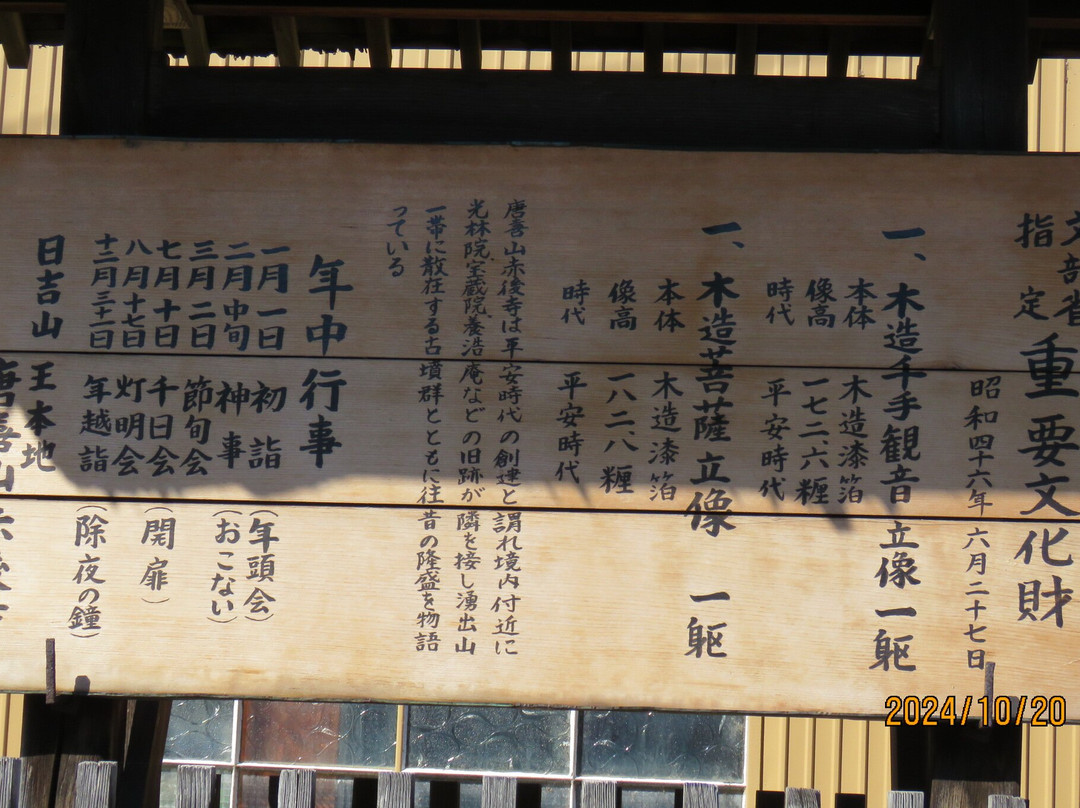 文部省
指定
重要文化財
昭和四十六年六月二十七日
一、木造千手観音立像 一躯
本体 木造漆箔
像高 一七二、六糎
時代 平安時代
一、木造菩薩立像 一躯
本体 木造漆箔
像高 一八二、八糎
時代 平安時代
唐喜山赤後寺は平安時代の創建と謂れ境内付近に
光林院、宝蔵院、養浩庵などの旧跡が隣を接し湧出山
一帯に散在する古墳群とともに往昔の隆盛を物語
っている
年中行事
一月一日 初詣 (年頭会)
二月中旬 神事 (おこない)
三月二日 節句会
七月十日 千日会 (開扉)
八月十七日 灯明会
十二月三十一日 年越詣 (除夜の鐘)
日吉山 王本地
唐喜山赤後寺
2024/10/20